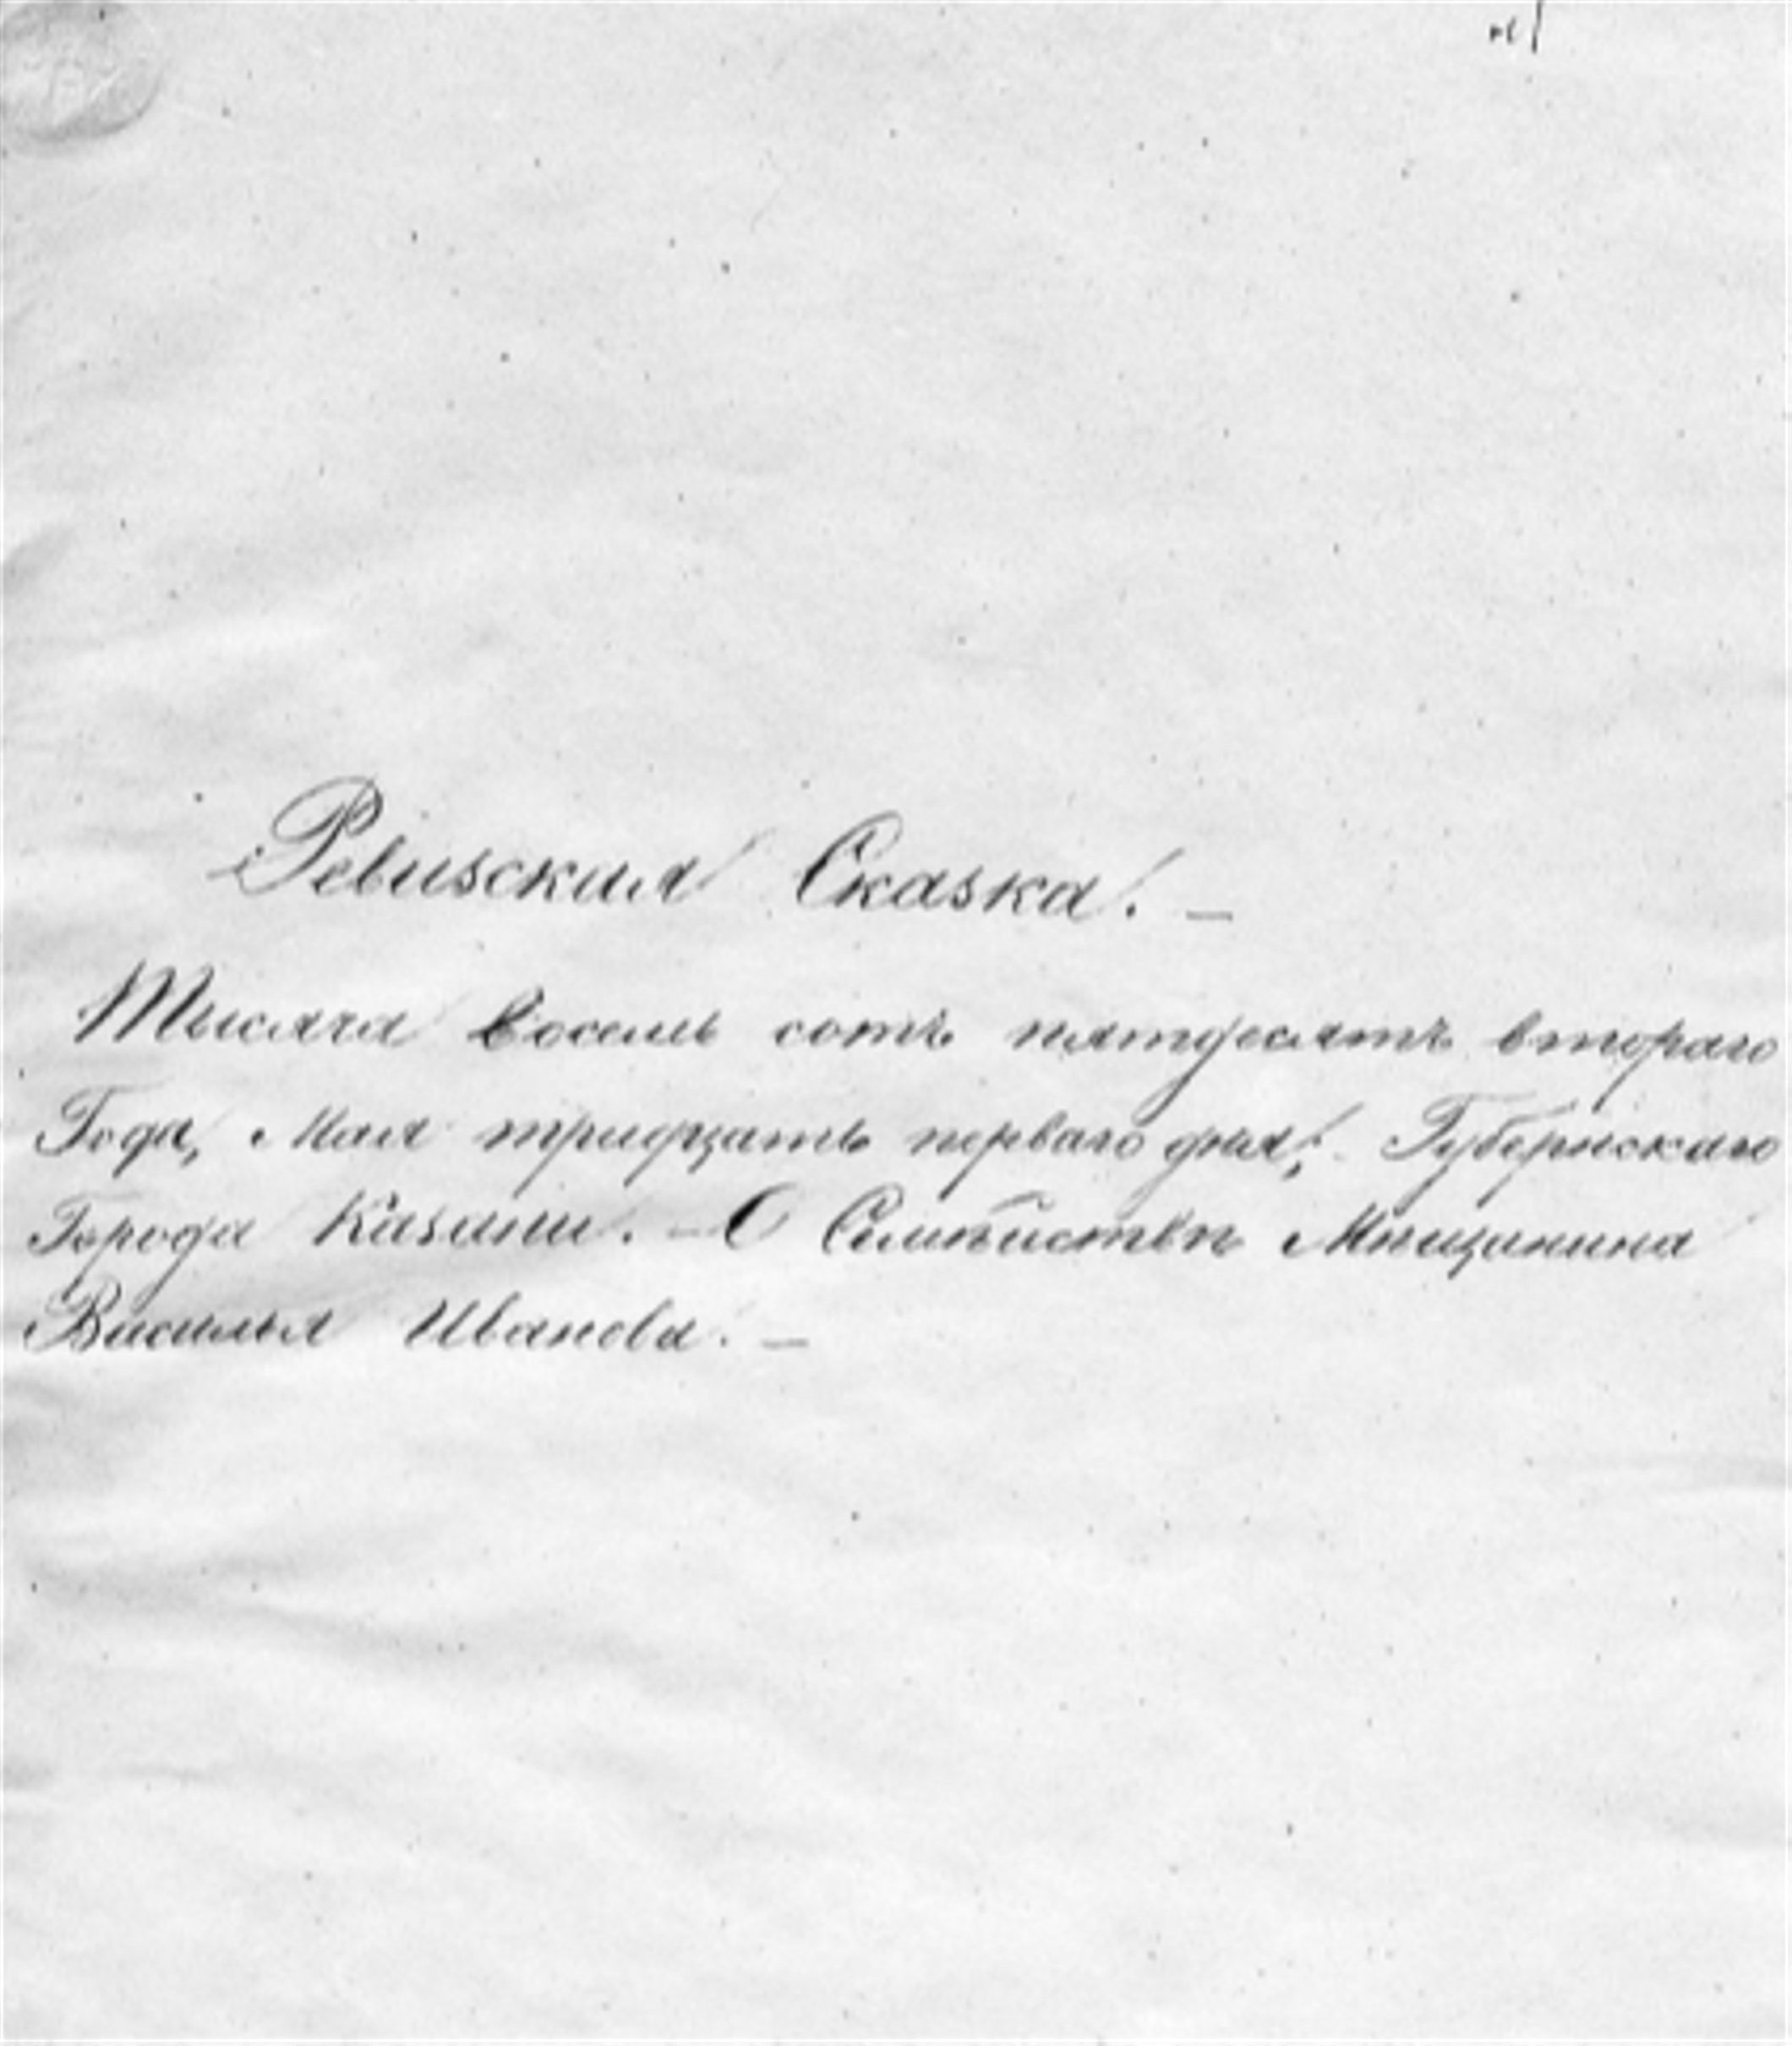 Ревизская Сказка. —
Тысяча восемь сотъ пятдесятъ втораго
Года, Мая тридцать перваго дня, Губернскаго
Города Казани. — О Семѣйствѣ Мѣщанина
Василья Иванова. —